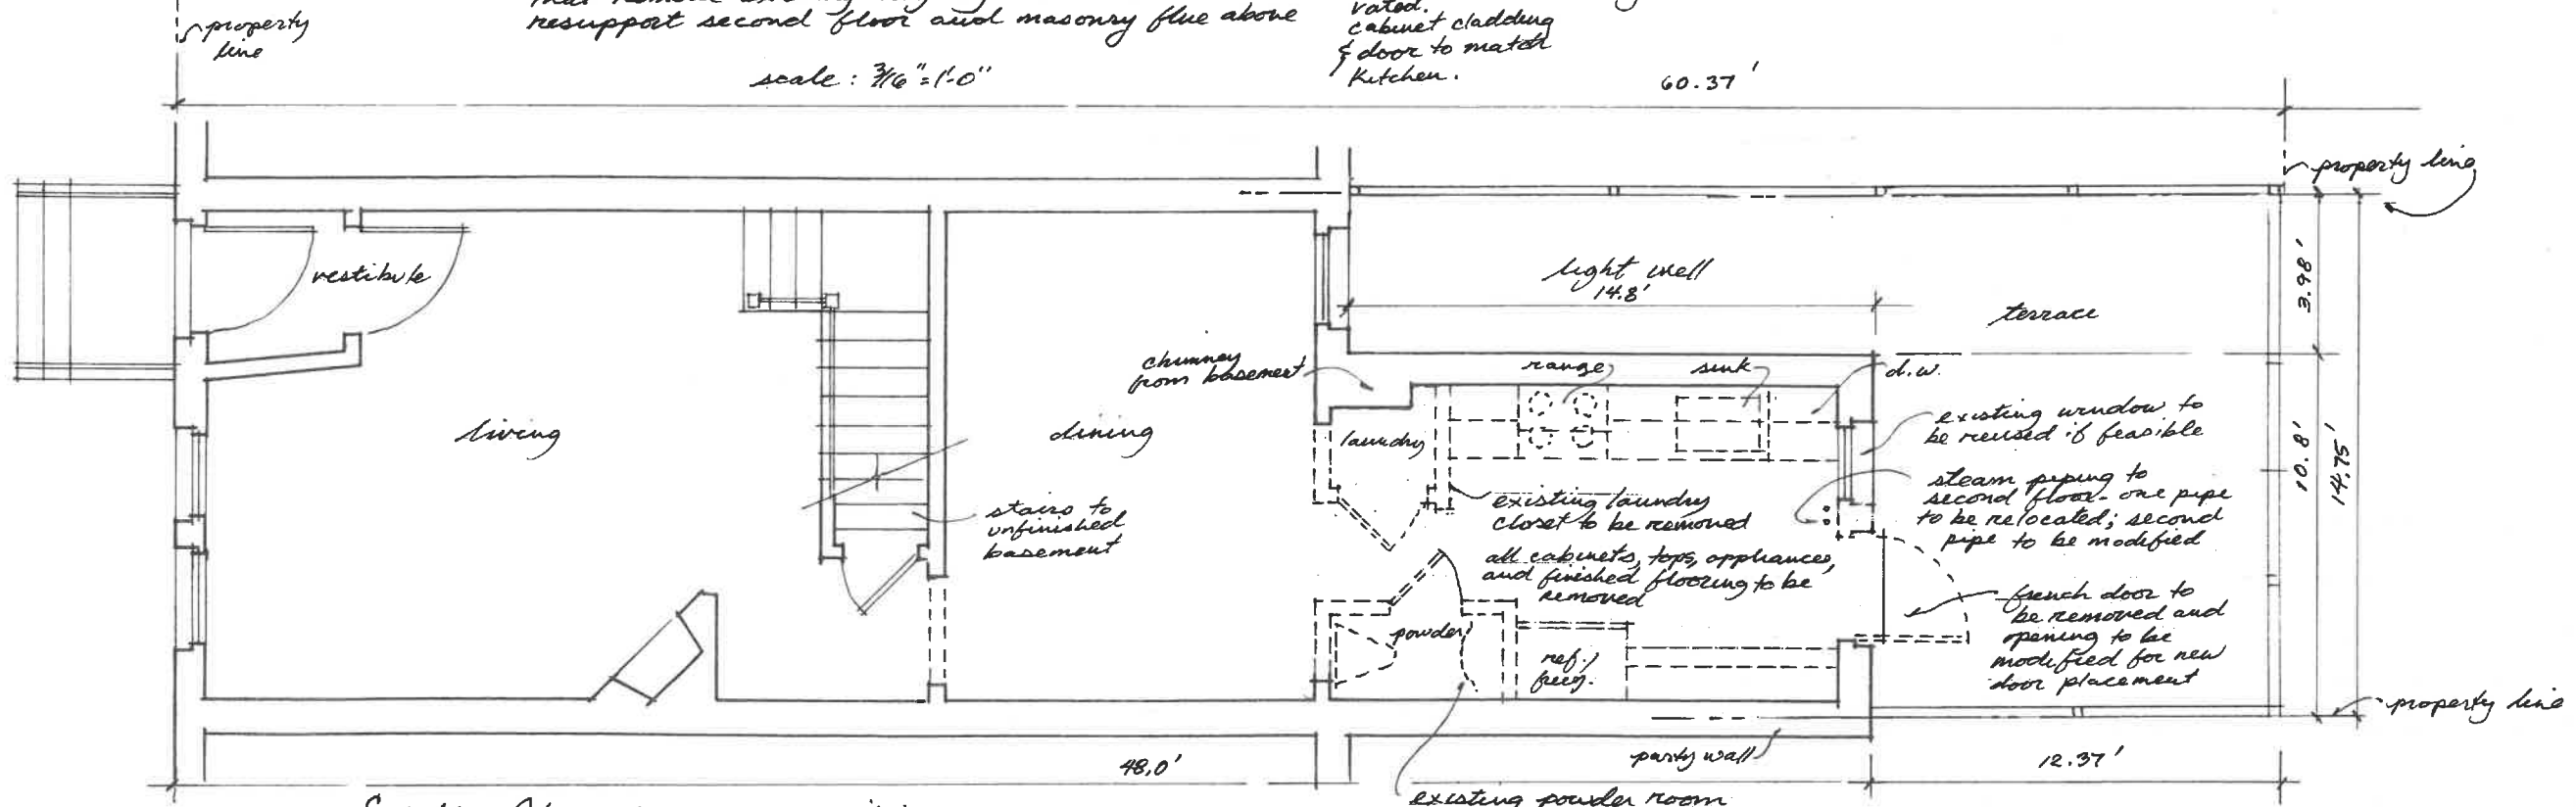 resupport second floor and masonry flue above
vated.
cabinet cladding
& door to match
kitchen.
property
line
scale: 3/16"=1'-0"
60.37'
property line
vestibule
light well
14.8'
terrace
3.98'
10.8'
14.75'
chimney
from basement
range
sink
d.w.
living
dining
laundry
existing window to
be reused if feasible
steam piping to
second floor - one pipe
to be relocated; second
pipe to be modified
stairs to
unfinished
basement
existing laundry
closet to be removed
all cabinets, tops, appliances,
and finished flooring to be
removed
french door to
be removed and
opening to be
modified for new
door placement
powder
ref./
freez.
property line
48.0'
party wall
12.37'
existing powder room